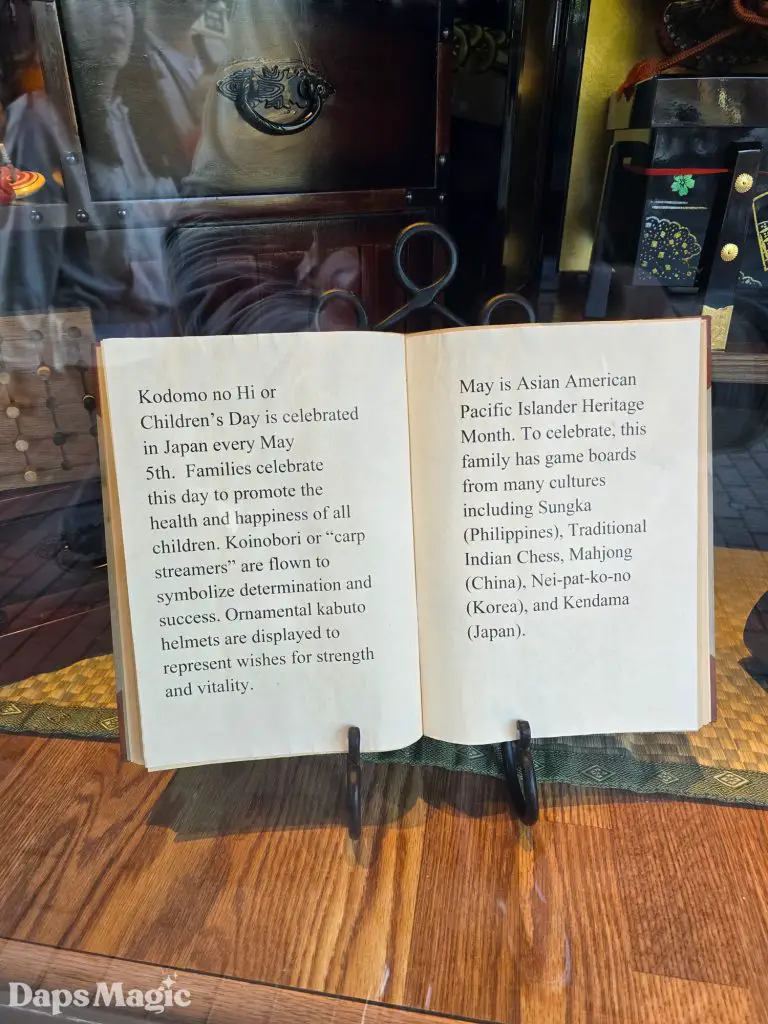 Kodomo no Hi or
Children’s Day is celebrated
in Japan every May
5th.  Families celebrate
this day to promote the
health and happiness of all
children. Koinobori or “carp
streamers” are flown to
symbolize determination and
success. Ornamental kabuto
helmets are displayed to
represent wishes for strength
and vitality.
May is Asian American
Pacific Islander Heritage
Month. To celebrate, this
family has game boards
from many cultures
including Sungka
(Philippines), Traditional
Indian Chess, Mahjong
(China), Nei-pat-ko-no
(Korea), and Kendama
(Japan).
DapsMagic